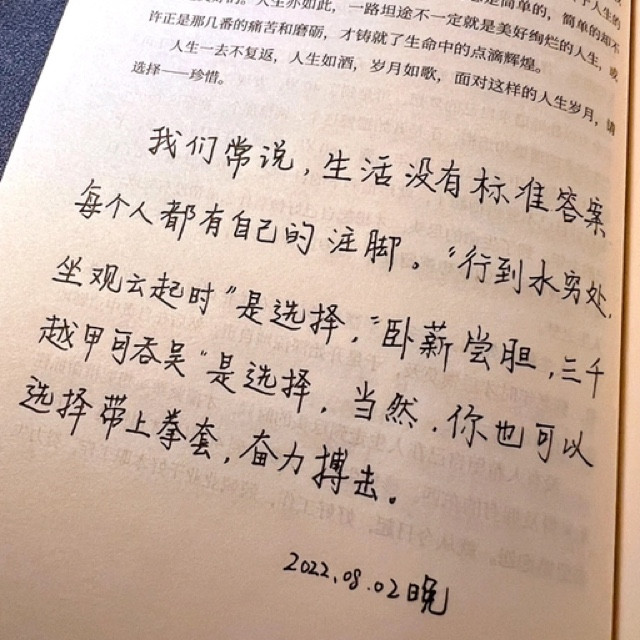 是简单的，简单的却不
人生亦如此，一路坦途不一定就是美好绚烂的人生，或
许正是那几番的痛苦和磨砺，才铸就了生命中的点滴辉煌。
人生一去不复返，人生如酒，岁月如歌，面对这样的人生岁月，请
选择——珍惜。
我们常说，生活没有标准答案
每个人都有自己的注脚。“行到水穷处，
坐观云起时”是选择，“卧薪尝胆，三千
越甲可吞吴”是选择，当然，你也可以
选择带上拳套，奋力搏击。
2022.08.02晚